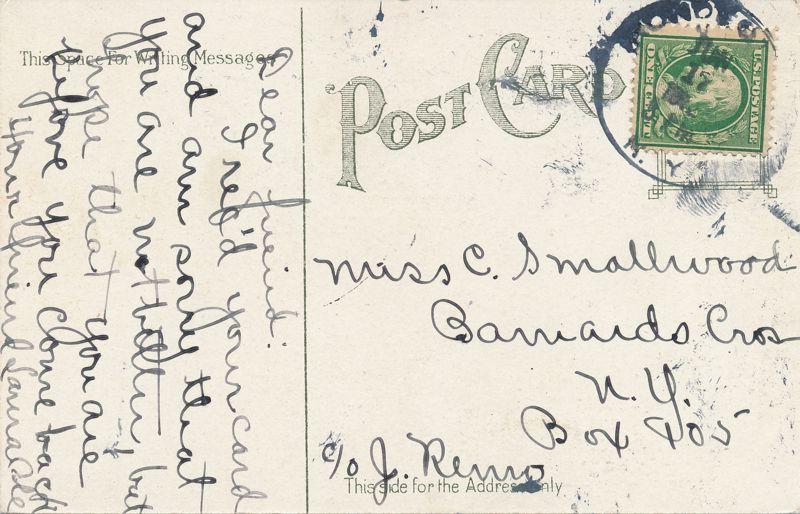 This Space For Writing Messages
Dear friend:
I rec'd your card
and am sorry that
you are not better, but
hope that you are
before you come back
Your friend Laura
POST CARD
U.S. POSTAGE
ONE CENT
N.Y.
Miss C. Smallwood
Barnards Cros
N.Y.
Box 405
c/o J. Remo
This side for the Address only